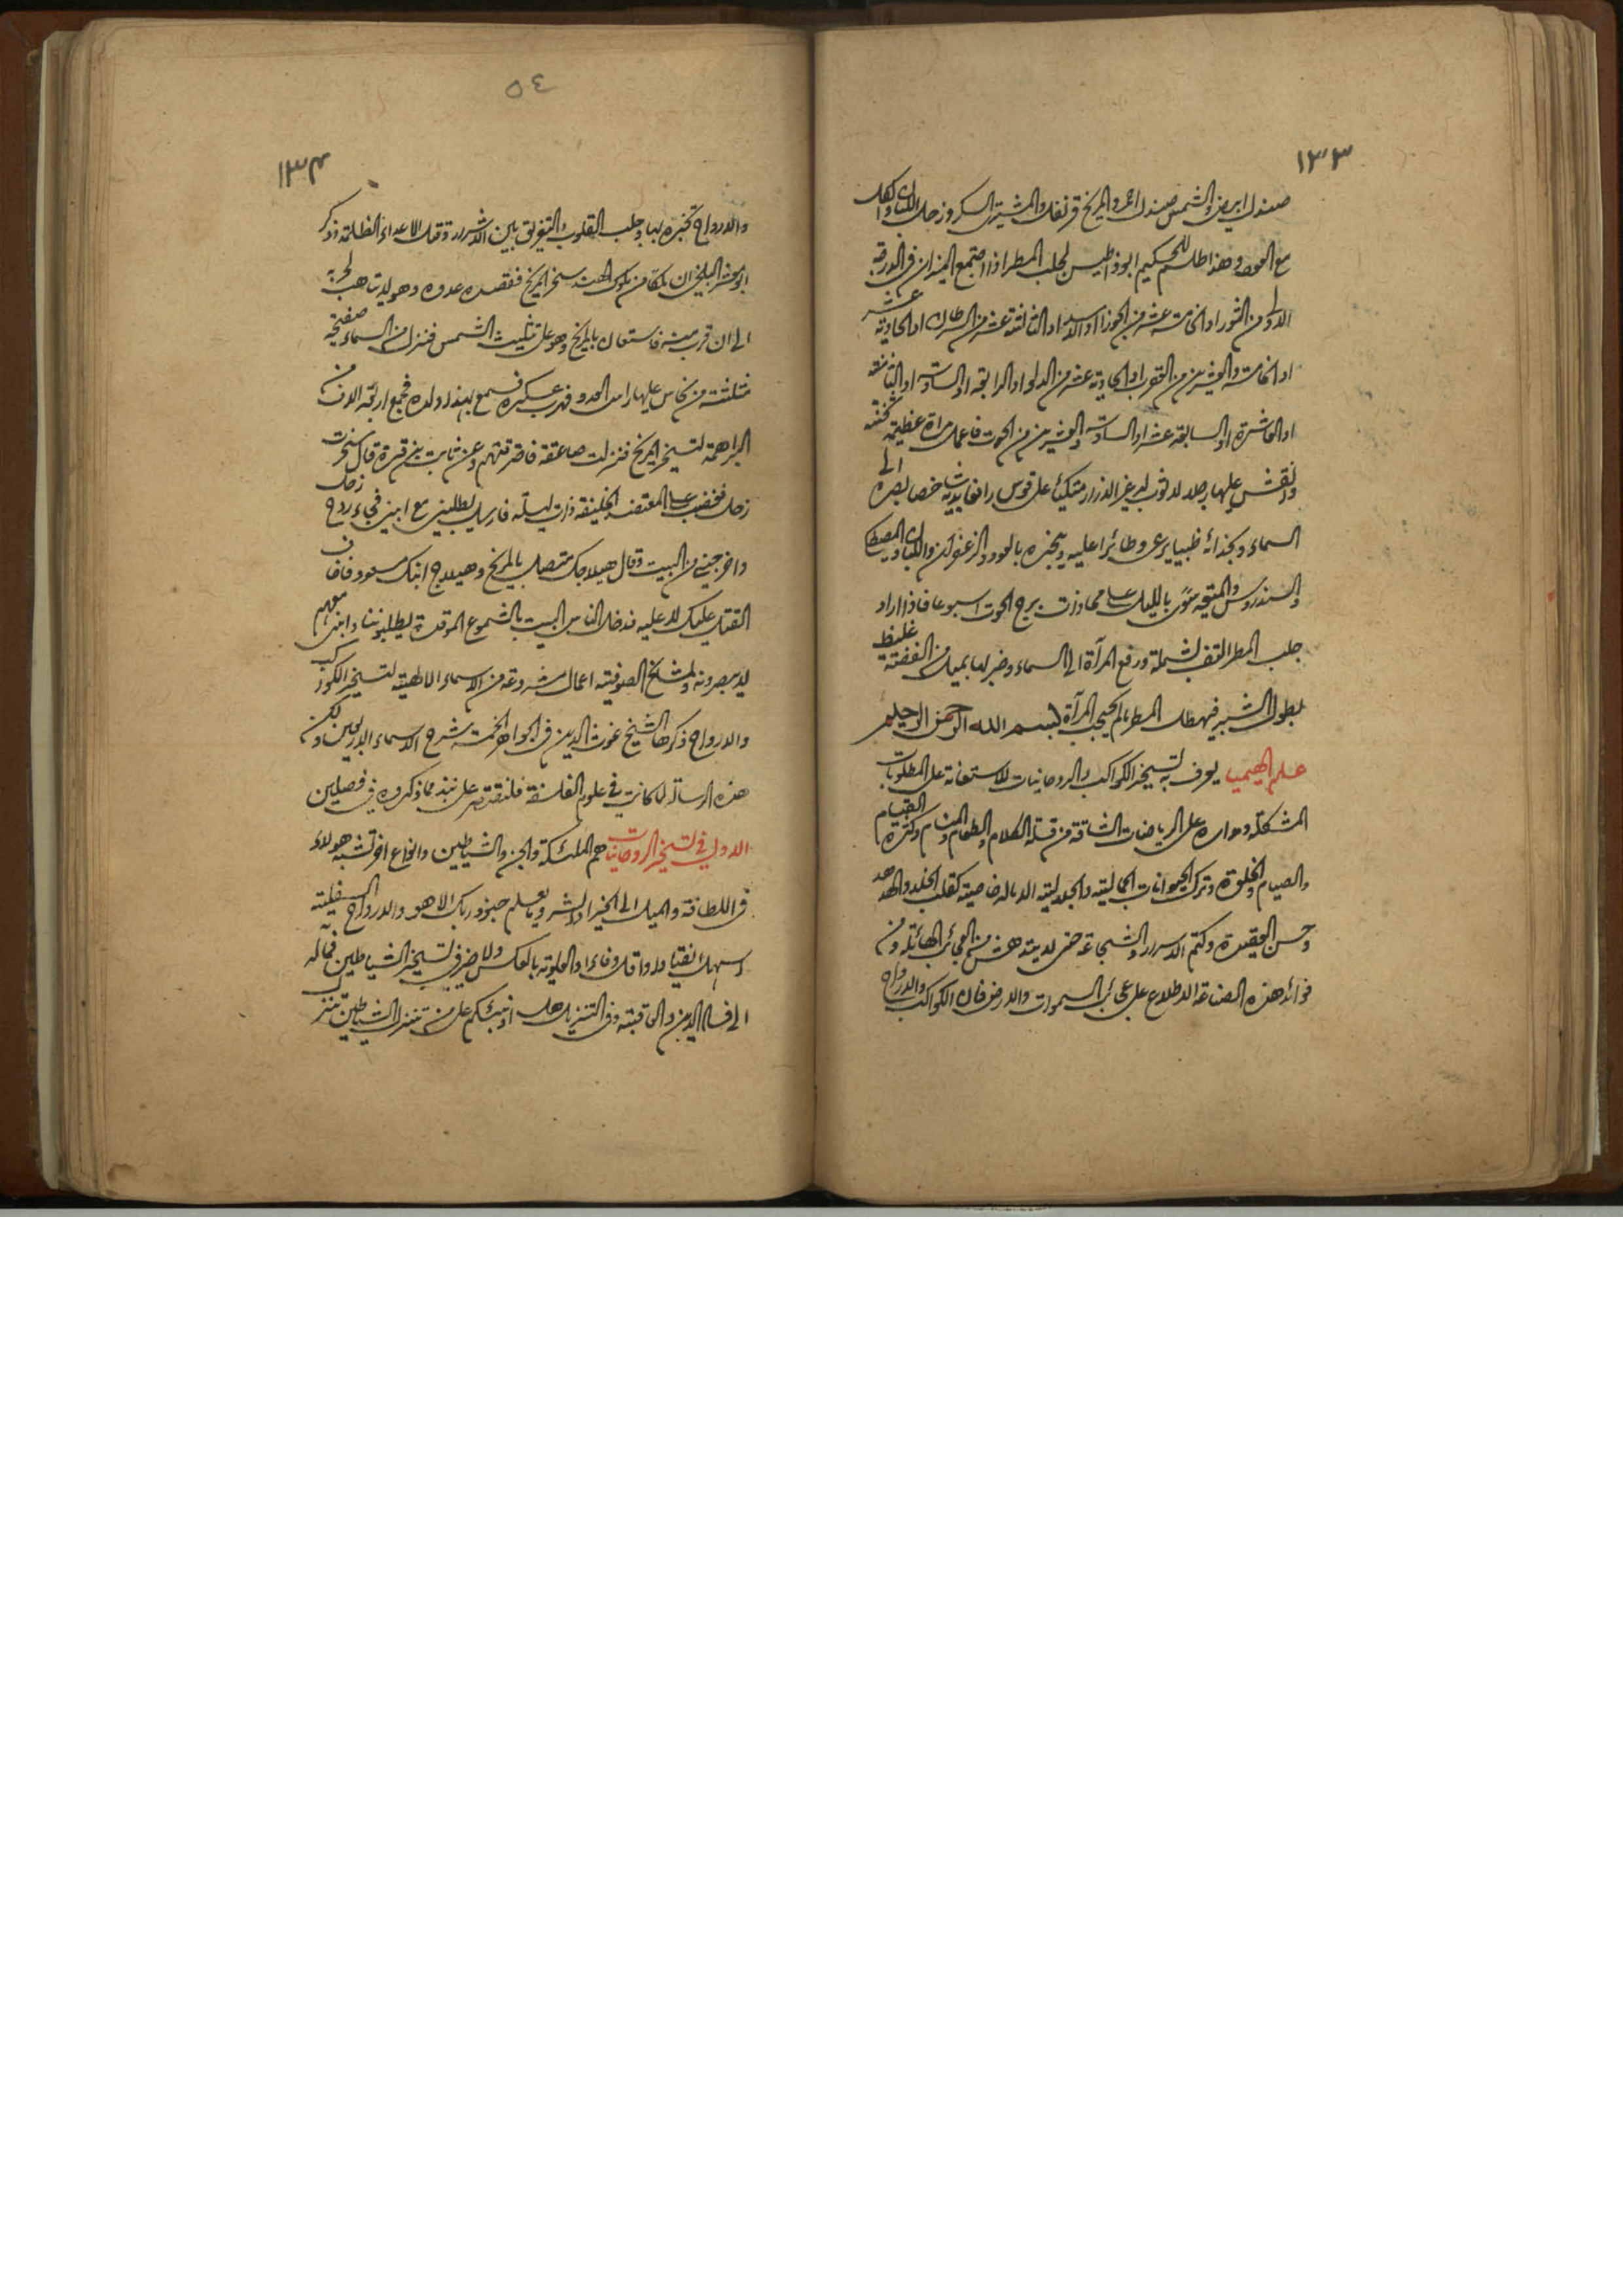 ١٣٣
صندل ابيض والشمس صندل احمر والمريخ قرنفل والمشتري السكر وزحل اللبان والكهل
مع العود وهذا طلسم للحكيم ابوذاطيس لجلب المطر اذا اجتمع النيران في الدرجة
الاولى من الثور او الخامسة عشر من الجوزا او الاسد او الثالثة عشر من السرطان او الحادية عشر
او الخامسة والعشرين من العقرب او الحادية عشر من الدلو او الرابعة او السادسة او الثامنة
او العاشرة او السابعة عشر او السادسة والعشرين من الحوت فاعمل مرآة عظيمة
وانقش عليها رجلا لا ثوب له غير الازار متكيا على قوس رافعا يديه شاخصا بصره الى
السماء وبحذائه ظبيا يرعى وطائرا عليه ويبخره بالعود والزعفران واللبان والمصطكا
والسندروس والميعة منوي بالليل على محاذات برج الحوت اسبوعا فاذا اراد
جلب المطر التف بشملة ورفع المرآة الى السماء وضربها بميل من الفضة غليظ
بطول الشبر فيهطل المطر ما لم يحجب المرآة بسم الله الرحمن الرحيم
علم الهيميا يعرف به تسخير الكواكب والروحانيات للاستعانة على المطلوبات
المشكلة ومداره على الرياضات الشاقة من قلة الكلام والطعام والمنام وكثرة القيام
والصيام والخلوة وترك الحيوانات الجمالية والجلالية الا ما له خاصية كقلب الخلد والهدهد
وحسن العقيدة وكتم الاسرار والشجاعة حتى لا يندهش من العجائب الهائلة ومن
فوائد هذه الصناعة الاطلاع على عجائب السموات والارض فان الكواكب والارواح
٥٤
١٣٤
والارواح تخبره بها وجلب القلوب والتفريق بين الاشرار وقتل الاعداء الظلمة وذكر
ابو معشر البلخي ان ملكا من ملوك الهند سخر المريخ فقصده عدوه وهو لا يتاهب لحربه
الى ان قرب منه فاستعان بالمريخ وهو على تثليث الشمس فنزل من السماء صفيحة
مثلثة من نحاس عليها راس العدو فهرب عسكره فسمع بهذا ولده فجمع اربعة الاف من
البراهمة لتسخير المريخ فنزلت صاعقة فاحرقتهم وعن ثابت بن قرة قال سخرت
زحل فغضب على المعتضد الخليفة ذات ليلة فارسل يطلبني مع ابني فجاء روح زحل
واخرجني من البيت وقال هيلاجك متصل بالمريخ وهيلاج ابنك مسعود فاخاف
القتل عليك لا عليه فدخل الناس البيت بالشموع الموقدة يطلبوننا وابني معهم
لا يبصرونه ولمشايخ الصوفية اعمال مشروعة من الاسماء الالهية لتسخير الكواكب
والارواح ذكرها الشيخ غوث الدين في الجواهر الخمسة شرح الاسماء الاربعين ولكن
هذه الرسالة لما كانت في علوم الفلاسفة فلنقتصر على نبذ مما ذكروه في فصلين
الاول في تسخير الروحانيات هم الملئكة والجن والشياطين وانواع اخر تشبه هولاء
في اللطافة والميل الى الخير او الشر وما يعلم جنود ربك الا هو والارواح السفلية
اسهل انقيادا واقل وفاءا والعلوية بالعكس ولا خير في تسخير الشياطين فماله
الى فساد الدين والعاقبة وفي التنزيل هل انبئكم على من تنزل الشياطين تنزل